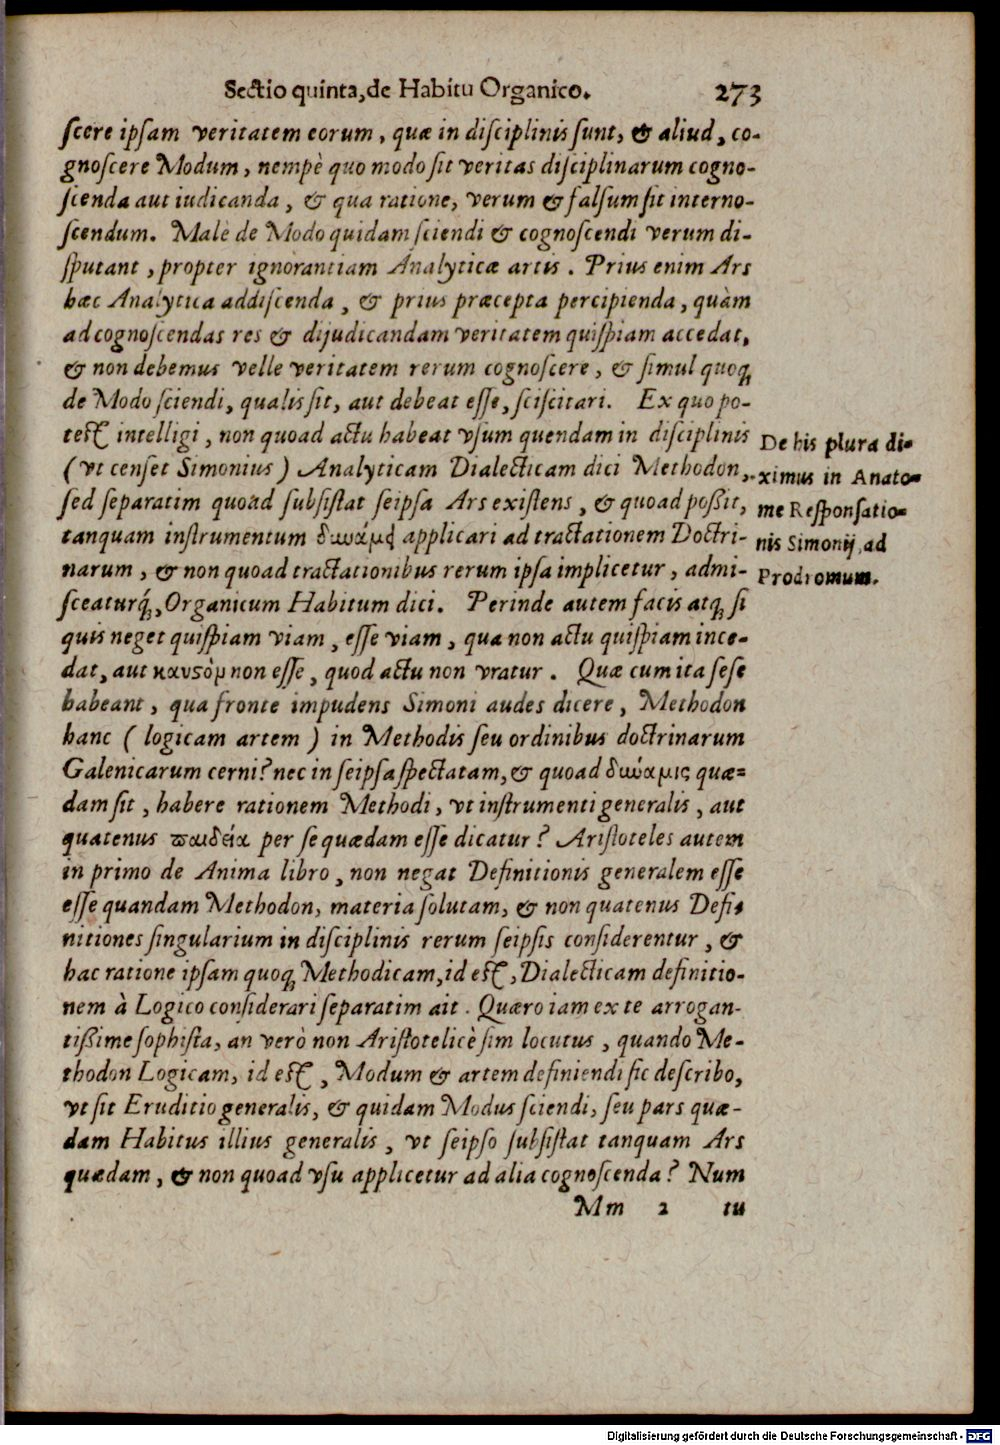 Sectio quinta, de Habitu Organico. 273
ſcere ipſam veritatem eorum, quæ in diſciplinis ſunt, & aliud, co-
gnoſcere Modum, nempè quo modo ſit veritas diſciplinarum cogno-
ſcenda aut iudicanda, & qua ratione, verum & falſum ſit interno-
ſcendum. Malè de Modo quidam ſciendi & cognoſcendi verum di-
ſputant, propter ignorantiam Analyticæ artis. Prius enim Ars
hæc Analytica addiſcenda, & prius præcepta percipienda, quàm
ad cognoſcendas res & dijudicandam veritatem quiſpiam accedat,
& non debemus velle veritatem rerum cognoſcere, & ſimul quoq;
de Modo ſciendi, qualis ſit, aut debeat eſſe, ſciſcitari. Ex quo po-
teſt intelligi, non quoad actu habeat vſum quendam in diſciplinis
(vt cenſet Simonius) Analyticam Dialecticam dici Methodon,
ſed ſeparatim quoad ſubſiſtat ſeipſa Ars exiſtens, & quoad poßit,
tanquam inſtrumentum δυνάμει applicari ad tractationem Doctri-
narum, & non quoad tractationibus rerum ipſa implicetur, admi-
ſceaturq́;, Organicum Habitum dici. Perinde autem facis atq; ſi
quis neget quiſpiam viam, eſſe viam, qua non actu quiſpiam ince-
dat, aut καυςὸν non eſſe, quod actu non vratur. Quæ cum ita ſeſe
habeant, qua fronte impudens Simoni audes dicere, Methodon
hanc (logicam artem) in Methodis ſeu ordinibus doctrinarum
Galenicarum cerni? nec in ſeipſa ſpectatam, & quoad δυνάμις quæ-
dam ſit, habere rationem Methodi, vt inſtrumenti generalis, aut
quatenus παιδεία per ſe quædam eſſe dicatur? Ariſtoteles autem
in primo de Anima libro, non negat Definitionis generalem eſſe
eſſe quandam Methodon, materia ſolutam, & non quatenus Defi-
nitiones ſingularium in diſciplinis rerum ſeipſis conſiderentur, &
hac ratione ipſam quoq; Methodicam, id eſt, Dialecticam definitio-
nem à Logico conſiderari ſeparatim ait. Quæro iam ex te arrogan-
tißime ſophiſta, an verò non Ariſtotelicè ſim locutus, quando Me-
thodon Logicam, id eſt, Modum & artem definiendi ſic deſcribo,
vt ſit Eruditio generalis, & quidam Modus ſciendi, ſeu pars quæ-
dam Habitus illius generalis, vt ſeipſo ſubſiſtat tanquam Ars
quædam, & non quoad vſu applicetur ad alia cognoſcenda? Num
Mm 2 tu
De his plura di-
ximus in Anato-
me Reſponſatio-
nis Simonij, ad
Prodromum.
Digitalisierung gefördert durch die Deutsche Forschungsgemeinschaft - DFG